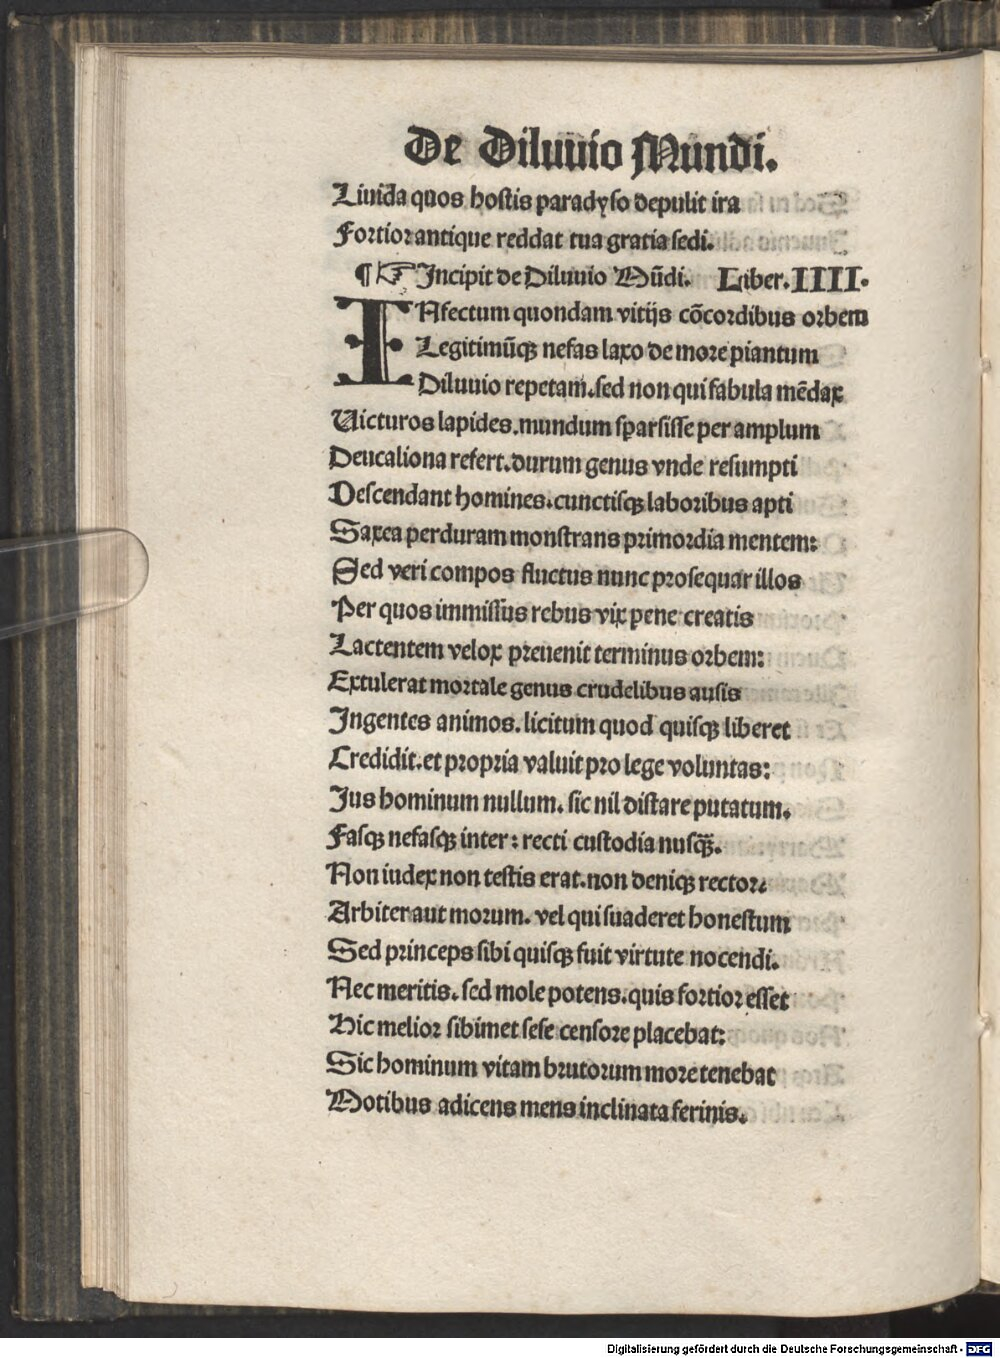 De Diluuio Mundi.
Liuida quos hostis paradyso depulit ira
Fortior antique reddat tua gratia sedi.
¶☞Incipit de Diluuio Mūdi. Liber.IIII.
INfectum quondam vitijs cōcordibus orbem
Legitimūqꝫ nefas laxo de more piantum
Diluuio repetam.sed non qui fabula mēdax
Uicturos lapides.mundum sparsisse per amplum
Deucaliona refert.durum genus vnde resumpti
Descendant homines.cunctisqꝫ laboribus apti
Saxea perduram monstrans primordia mentem:
Sed veri compos fluctus nunc prosequar illos
Per quos immissus rebus vix pene creatis
Lactentem velox preuenit terminus orbem:
Extulerat mortale genus crudelibus ausis
Ingentes animos.licitum quod quisqꝫ liberet
Credidit.et propria valuit pro lege voluntas:
Jus hominum nullum. sic nil distare putatum.
Fasqꝫ nefasqꝫ inter: recti custodia nusq̄ꝫ.
Non iudex non testis erat.non deniqꝫ rector.
Arbiter aut morum. vel qui suaderet honestum
Sed princeps sibi quisqꝫ fuit virtute nocendi.
Nec meritis.sed mole potens.quis fortior esset
Hic melior sibimet sese censore placebat:
Sic hominum vitam brutorum more tenebat
Motibus adicens mens inclinata ferinis.
Digitalisierung gefördert durch die Deutsche Forschungsgemeinschaft - DFG